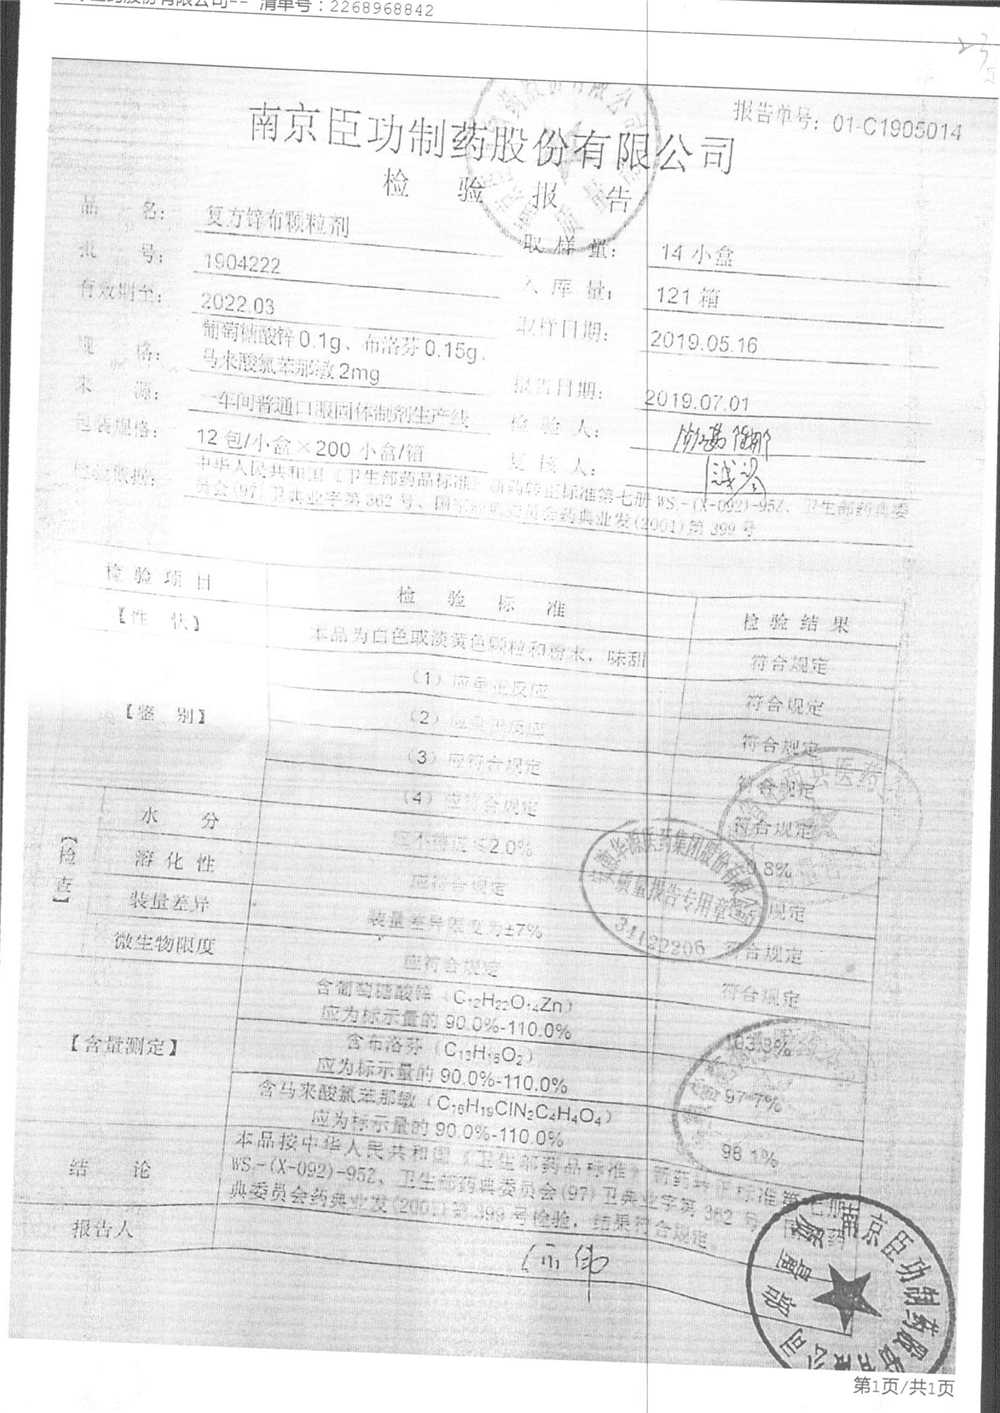 清单号：2268968842
报告单号：01-C1905014
南京臣功制药股份有限公司
检 验 报 告
品 名： 复方锌布颗粒剂 取样量： 14小盒
批 号： 1904222 入库量： 121箱
有效期至： 2022.03 取样日期： 2019.05.16
规 格： 葡萄糖酸锌0.1g、布洛芬0.15g、
马来酸氯苯那敏2mg 报告日期： 2019.07.01
来 源： 一车间普通口服固体制剂生产线 检 验 人：
包装规格： 12包/小盒×200小盒/箱 复 核 人：
检验依据： 中华人民共和国《卫生部药品标准》新药转正标准第七册WS₁-(X-092)-95Z、卫生部药典委
员会(97)卫典业字第362号、国家药典委员会药典业发(2001)第399号
检验项目 检 验 标 准 检验结果
【性 状】 本品为白色或淡黄色颗粒和粉末，味甜 符合规定
【鉴 别】 (1)应呈正反应 符合规定
(2)应呈正反应 符合规定
(3)应符合规定 符合规定
(4)应符合规定 符合规定
【检查】 水 分 ≤2.0% 0.8%
溶化性 应符合规定 符合规定
装量差异 装量差异限度为±7% 符合规定
微生物限度 应符合规定 符合规定
【含量测定】 含葡萄糖酸锌（C₁₂H₂₂O₁₄Zn）
应为标示量的90.0%-110.0% 103.3%
含布洛芬（C₁₃H₁₈O₂）
应为标示量的90.0%-110.0% 97.7%
含马来酸氯苯那敏（C₁₆H₁₉ClN₂C₄H₄O₄）
应为标示量的90.0%-110.0% 98.1%
结 论 本品按中华人民共和国《卫生部药品标准》新药转正标准第七册
WS₁-(X-092)-95Z、卫生部药典委员会(97)卫典业字第362号、国家药
典委员会药典业发(2001)第399号检验，结果符合规定。
报告人
质量报告专用章
31120206
南京臣功制药股份有限公司
第1页/共1页